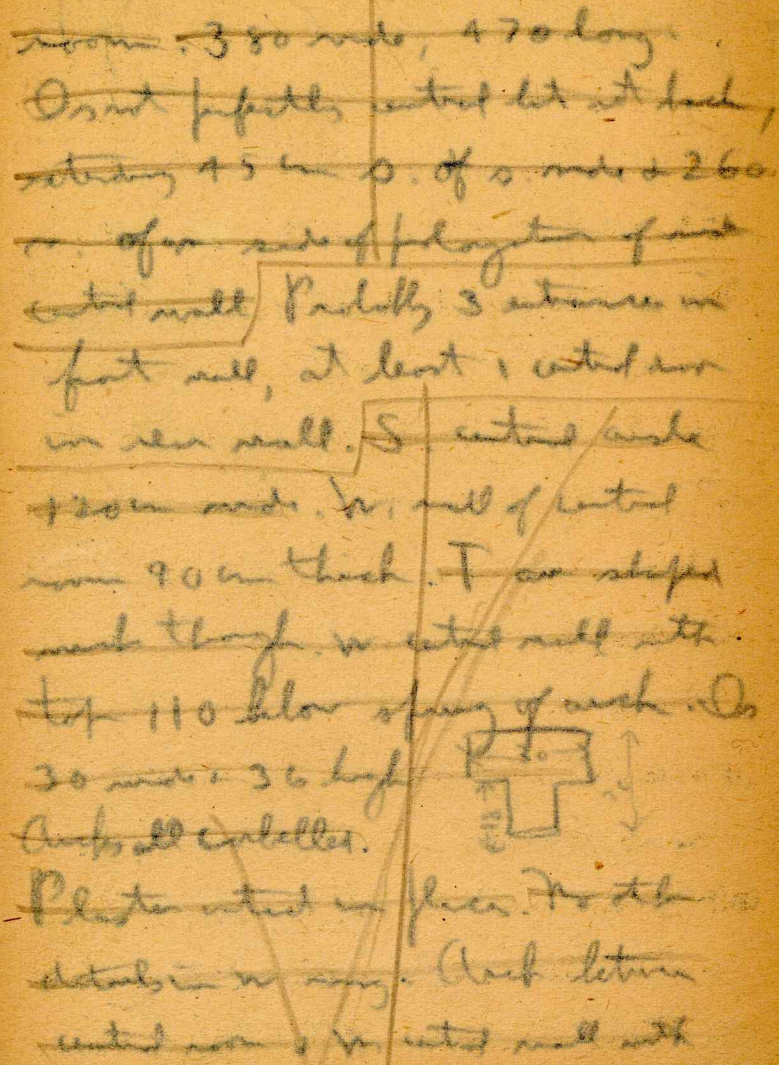 room. 380 wide, 470 long.
Is not perfectly central but set back,
45 cm s. of s. side & 260
n. of n. side of prolongation of
central wall. Probably 3 entrances in
front wall, at least 1 central door
in rear wall. S. central
120 cm wide. N. wall of central
room 90 cm thick. T shaped
through N central wall with
top 110 below spring of arch. Is
30 wide & 36 high
Arches all corbelled.
Plaster intact in places. No other
details in N wing. Arch between
central room & N. central wall with